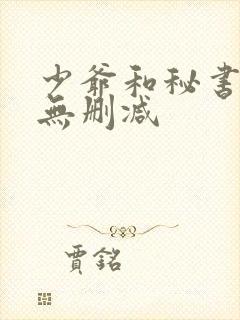 少爺和秘書
無删減
賈銘